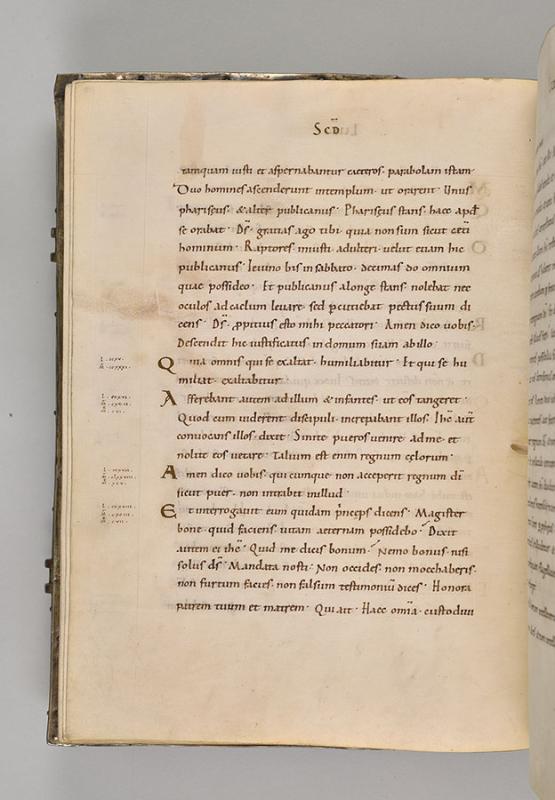 Scd̄
tamquam iusti et aspernabantur caeteros parabolam istam·
Duo homines ascenderunt in templum· ut orarent· Unus
phariseus· & alter publicanus· Phariseus stans· haec apd̄
se orabat· Ds̄· gratias ago tibi· quia non sum sicut cet̄i
hominum· Raptores iniusti adulteri· velut etiam hic
publicanus· Ieiuno bis in sabbato· decimas do omnium
quae possideo· Et publicanus a longe stans· nolebat nec
oculos ad caelum levare· sed p̄cutiebat pectus suum di
cens· Ds̄· ꝓpitius esto mihi peccatori· Amen dico vobis·
Descendit hic iustificatus in domum suam ab illo·
Quia omnis qui se exaltat· humiliabitur· Et qui se hu
miliat· exaltabitur·
Afferebant autem ad illum & infantes· ut eos tangeret·
Quod cum viderent discipuli· increpabant illos· Ihc̄ aūt
convocans illos· dixit· Sinite pueros venire ad me· et
nolite eos vetare· Talium est enim regnum cęlorum·
Amen dico vobis· quicumque non acceperit regnum dī
sicut puer· non intrabit in illud·
Et interrogavit eum quidam p̄nceps dicens· Magister
bone· quid faciens· vitam aeternam possidebo· Dixit
autem ei ihc̄· Quid me dicis bonum· Nemo bonus· nisi
solus ds̄· Mandata nosti· Non occides· non moechaberis·
non furtum facies· non falsum testimoniū dices· Honora
patrem tuum et matrem· Qui ait· Haec om̄ia· custodivi